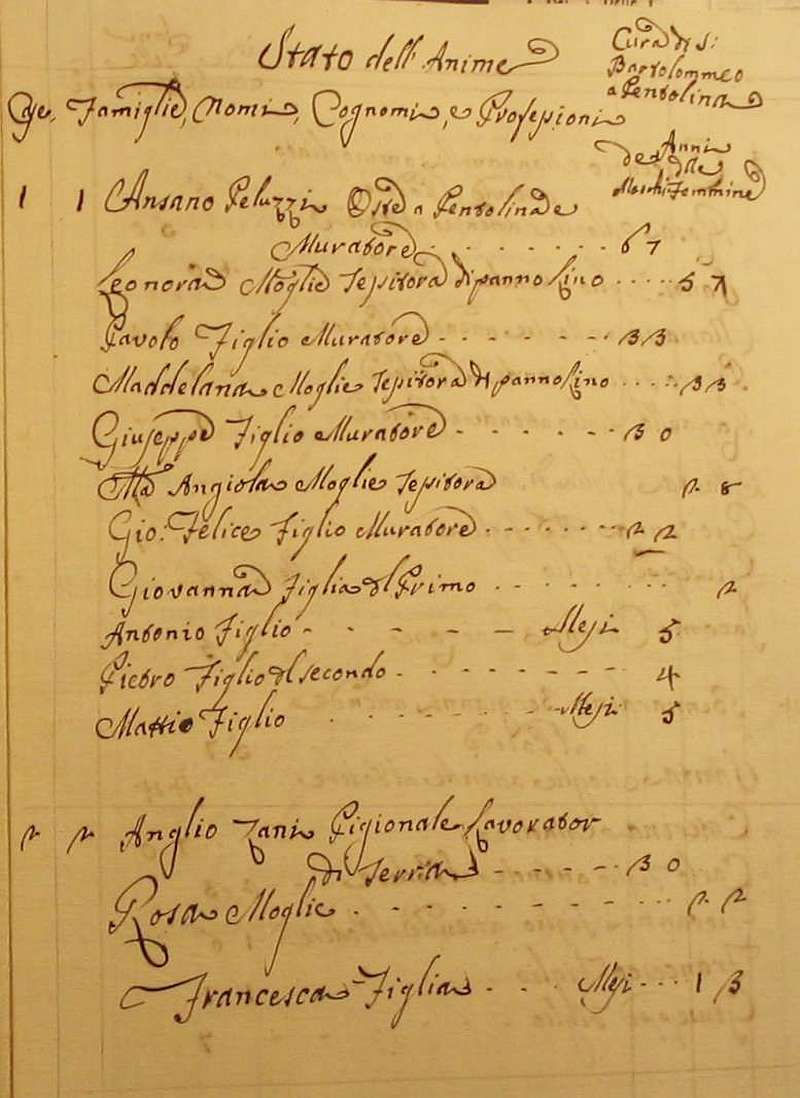 Stato dell'Anime
Cura di S:
Bartolommeo
a Pentolina
Case, Famiglie, Nomi, Cognomi, e Professioni
Anni
dell'età
Maschi Femmine
1 1 Ansano Peluzzi Oste a Pentolina e
Muratore 67
Leonora Moglie Tessitora di panno lino 57
Pavolo Figlio Muratore 33
Maddelana Moglie Tessitora di panno lino 33
Giuseppe Figlio Muratore 30
Ma Angiola Moglie Tessitora 28
Gio: Felice Figlio Muratore 22
Giovanna Figlia del Primo 2
Antonio Figlio Mesi 5
Pietro Figlio del secondo 4
Mattio Figlio Mesi 5
2 2 Anglio Zani Pigionale Lavorator
di Terra 30
Rosa Moglie 22
Francesca Figlia Mesi 13